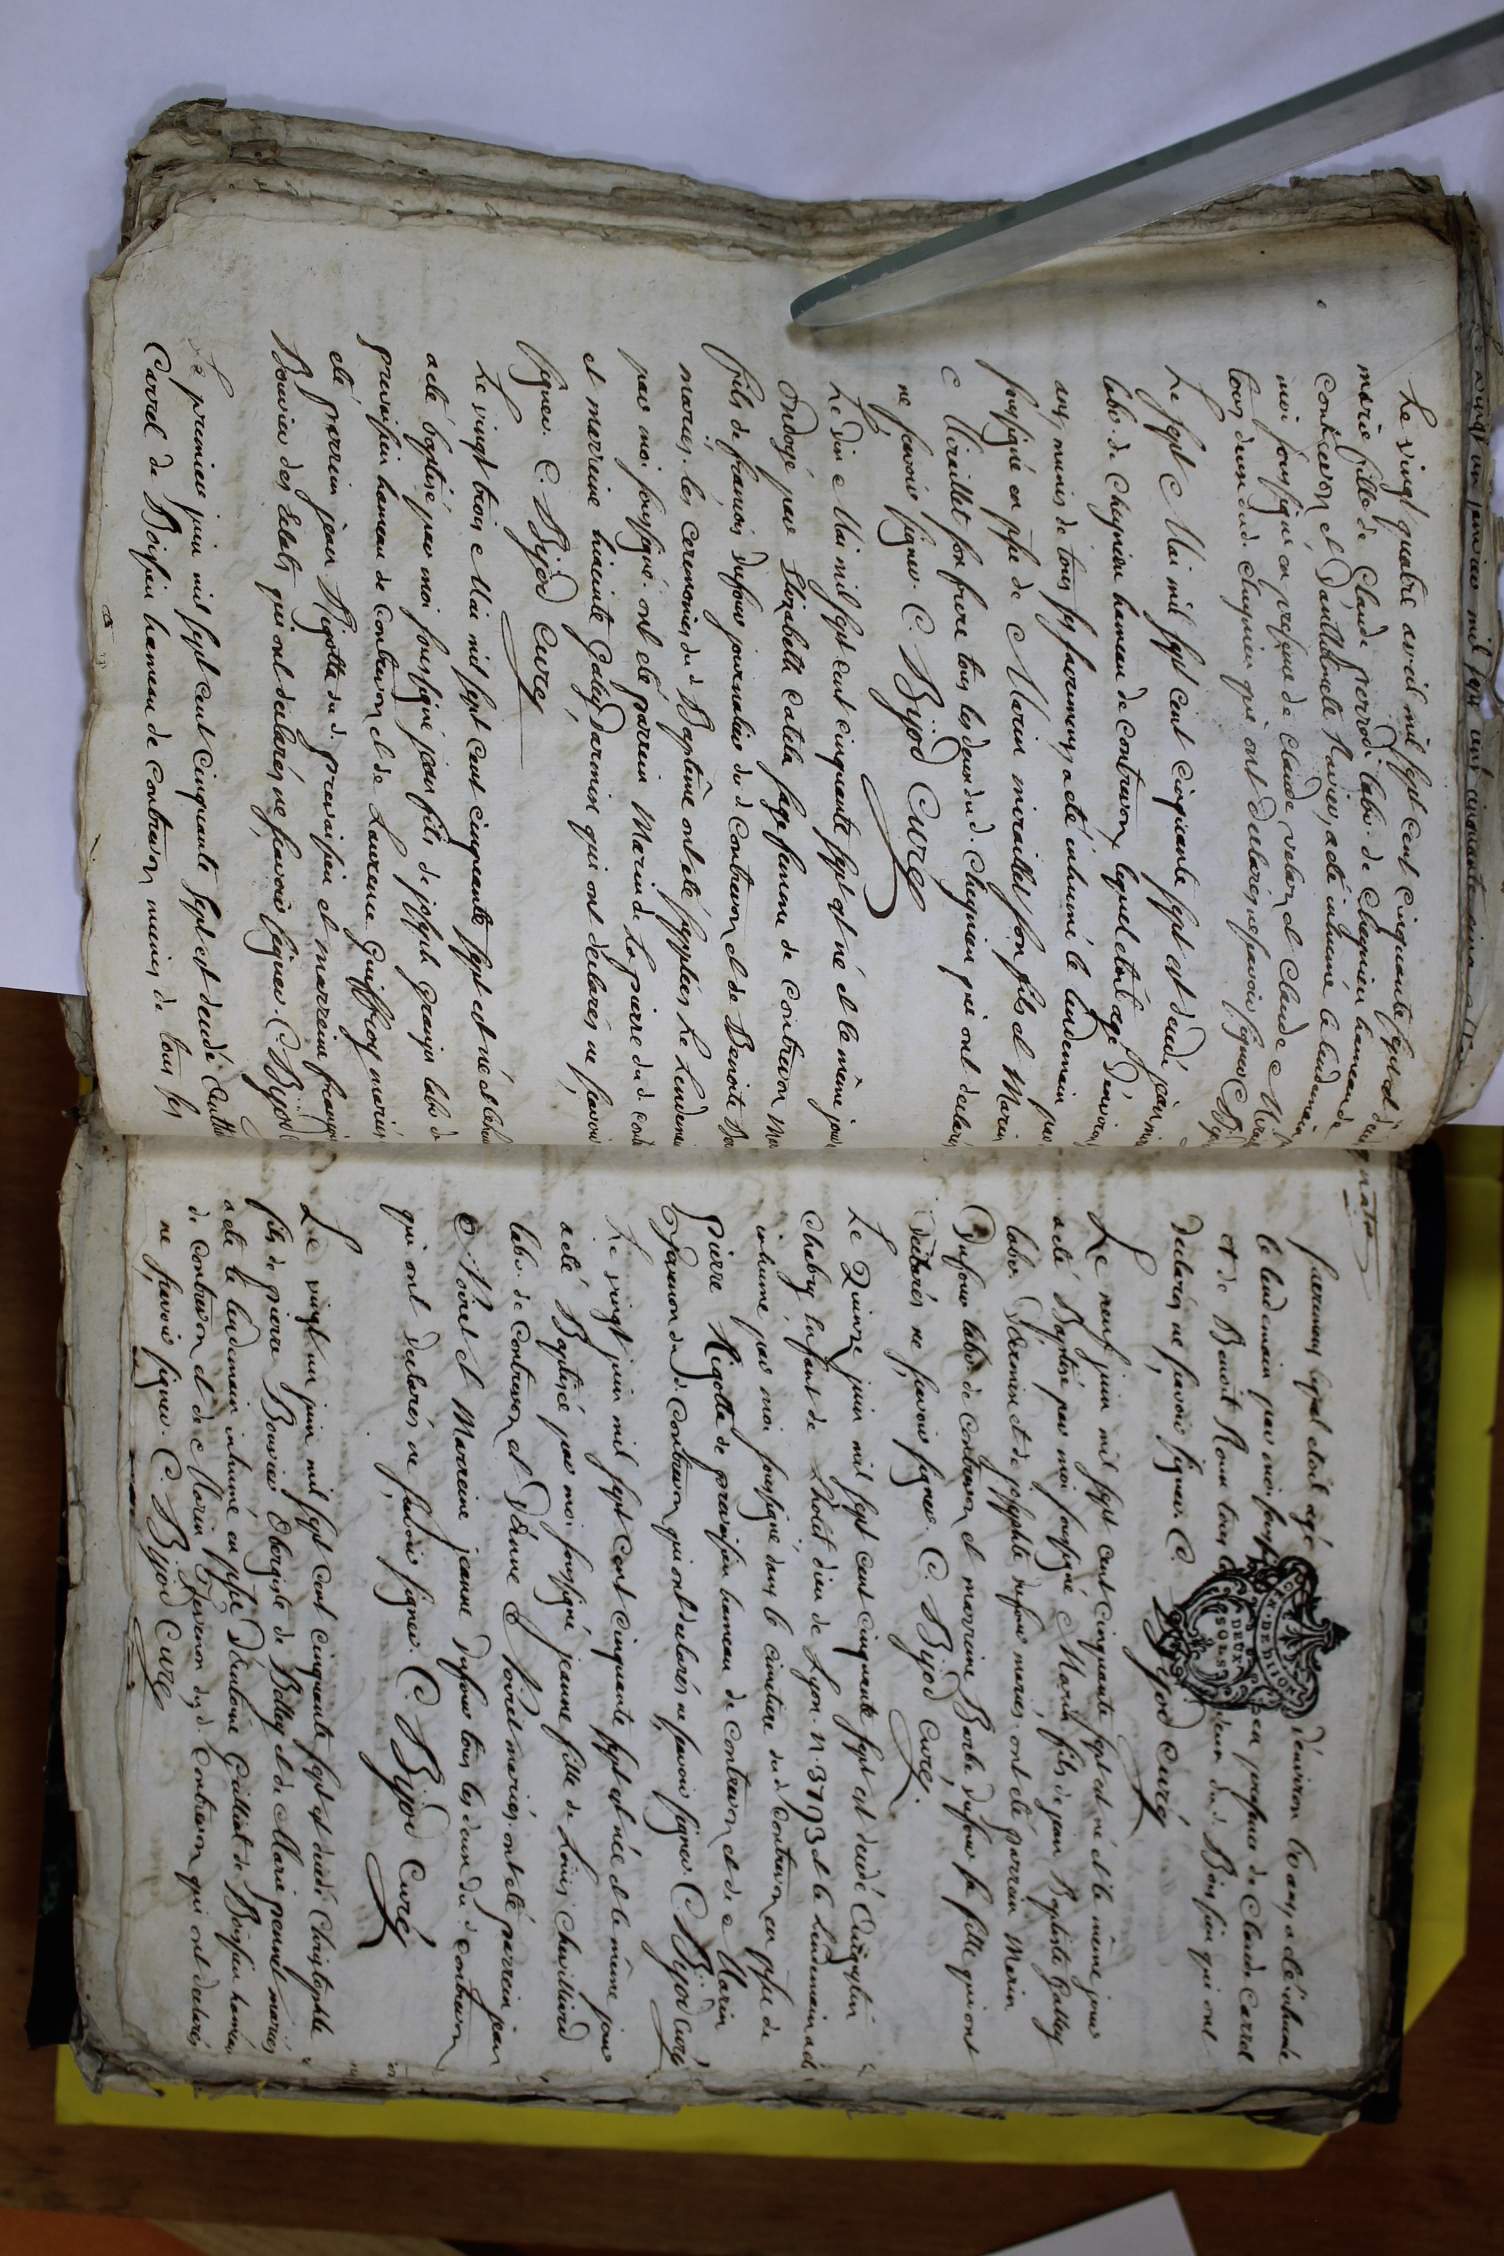 Le vingt quatre avril mil sept cent cinquante sept est
marie fille de Claude perrodi labr. de Cheynieu hameau de
Contrevoz et D'anthelmette Ravier, a été inhumé le lendemain
moi soussigné en presence de Claude velan et Claude
tous deux dud. cheynieu qui ont declarés ne savoir signer C. Bijod
Le sept Mai mil sept cent cinquante sept est decedé jean
labr. de Cheynieu hameau de Contrevoz lequel etoit agé D'environ
ans, munis de tous ses sacremens, a été inhumé le lendemain par
soussigné en psce de Marin miraillet son fils et Marin
Miraillet son frere tous les deux dud. Cheynieu qui ont declaré
ne sçavoir signer. C. Bijod Curé
Le dix Mai mil sept cent cinquante sept est né et le même jour
Ondoyé par Elizabeth Catela sage femme de Contrevoz
fils de françois dufour journalier dud Contrevoz et de Benoite
mariés. les Ceremonies du Baptême ont été suppléés Le Lendemain
par moi soussigné. ont été parrein Marin de La pierre dud.
et marreine hiacinte Galley Darmin qui ont declarés ne sçavoir
signer. C. Bijod Curé
Le vingt trois Mai mil sept cent cinquante sept est né et
a été baptisé par moi soussigné jean fils de joseph grangin labr d
premisieu hameau de Contrevoz et de Laurence Guiffroy mariés
été parrein jean Rigotta du d. premisieu et marreine
Bouvier des Eclats qui ont declarés ne sçavoir signer. C. Bijod
Le premier juin mil sept cent cinquante sept est decedé
Carrel de Boissieu hameau de Contrevoz munis de tous ses
sacremens lequel etoit agé D'environ ans, a été inhumé
le lendemain par moi en presence de Claude Carrel
et de Benoit Roux tous deux dud. Boissieu qui ont
declarés ne sçavoir signer. C. Bijod Curé
DEUX
SOLS
Le neuf juin mil sept cent cinquante sept est né et le même jour
a été Baptisé par moi soussigné Marin fils de jean Baptiste Galley
labr. D'armin et de josephte dufour mariés. ont été parrein Marin
Dufour labr. de Contrevoz et marreine Barbe dufour sa fille qui ont
declarés ne sçavoir signer. C. Bijod Curé.
Le Quinze juin mil sept cent cinquante sept est decedé Augustin
Chabry enfant de L'hotel dieu de Lyon. n. 3793 et le Lendemain a été
inhumé par moi soussigné dans le cimetiere dud Contrevoz en psce de
Pierre Rigotta de premisieu hameau de Contrevoz et de Marin
Thevenon dud. Contrevoz qui ont declarés ne sçavoir signer C. Bijod Curé
Le vingt juin mil sept cent cinquante sept est née et le même jour
a été Baptisée par moi soussigné jeanne fille de Louis Chevilliard
labr. de Contrevoz et D'anne Poiret mariés. ont été parrein jean
Poiret et Marreine jeanne dufour tous les deux dud. Contrevoz
qui ont declarés ne sçavoir signer. C. Bijod Curé
Le vingt un juin mil sept cent cinquante sept est decedé Christophle
fils de pierre Bouvier Aborgiste de Belley et de Marie peunet mariés
a été le lendemain inhumé en psce D'antoine Gaillat de Boissieu hameau
de Contrevoz et de Marin Thevenon dud. Contrevoz qui ont declarés
ne sçavoir signer. C. Bijod Curé